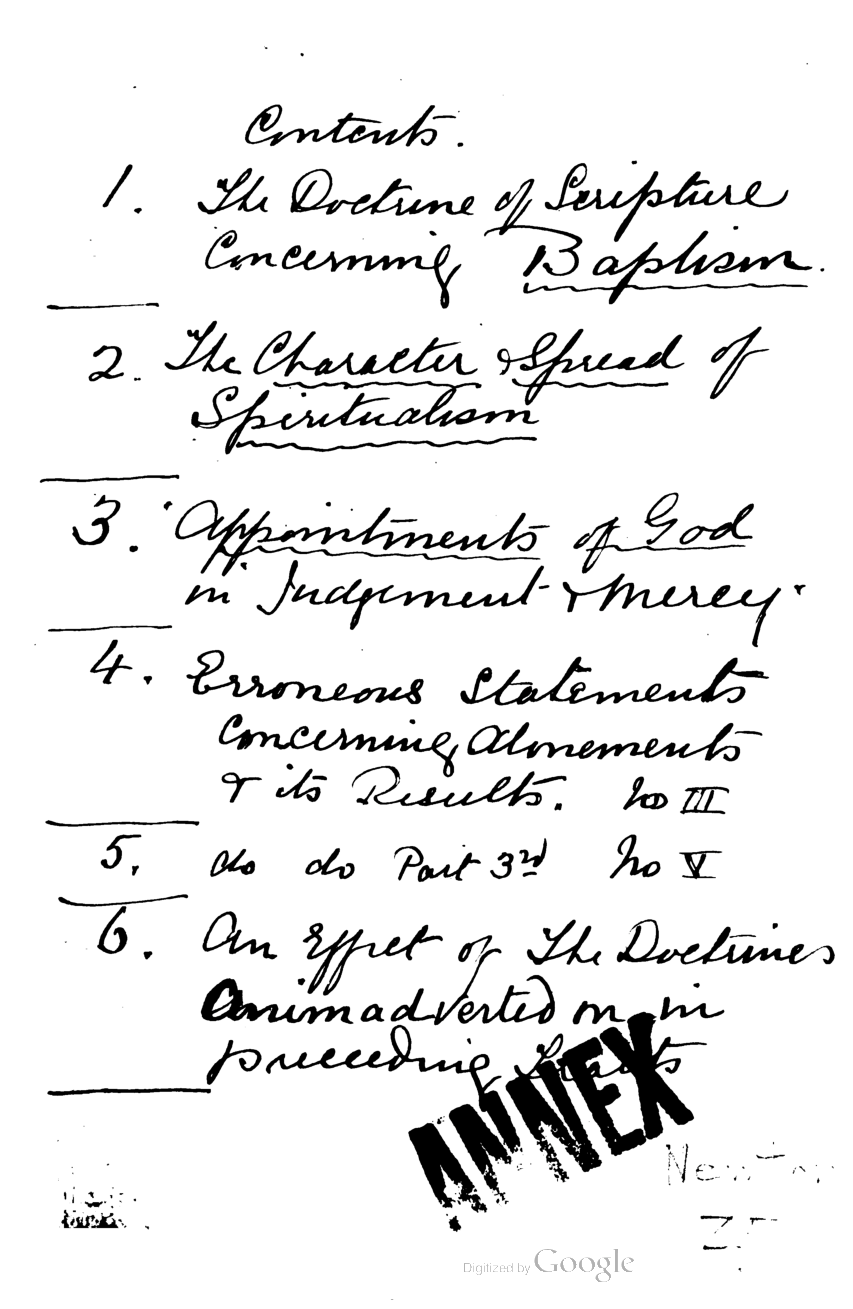 Contents.
1. The Doctrine of Scripture
Concerning Baptism.
2. The Character & Spread of
Spiritualism
3. Appointments of God
in Judgement & Mercy.
4. Erroneous Statements
Concerning Atonements
& its Results. No III
5. do do Part 3rd No V
6. An Effect of The Doctrines
Animadverted on in
preceding Tracts
ANNEX
Newton
Digitized by Google